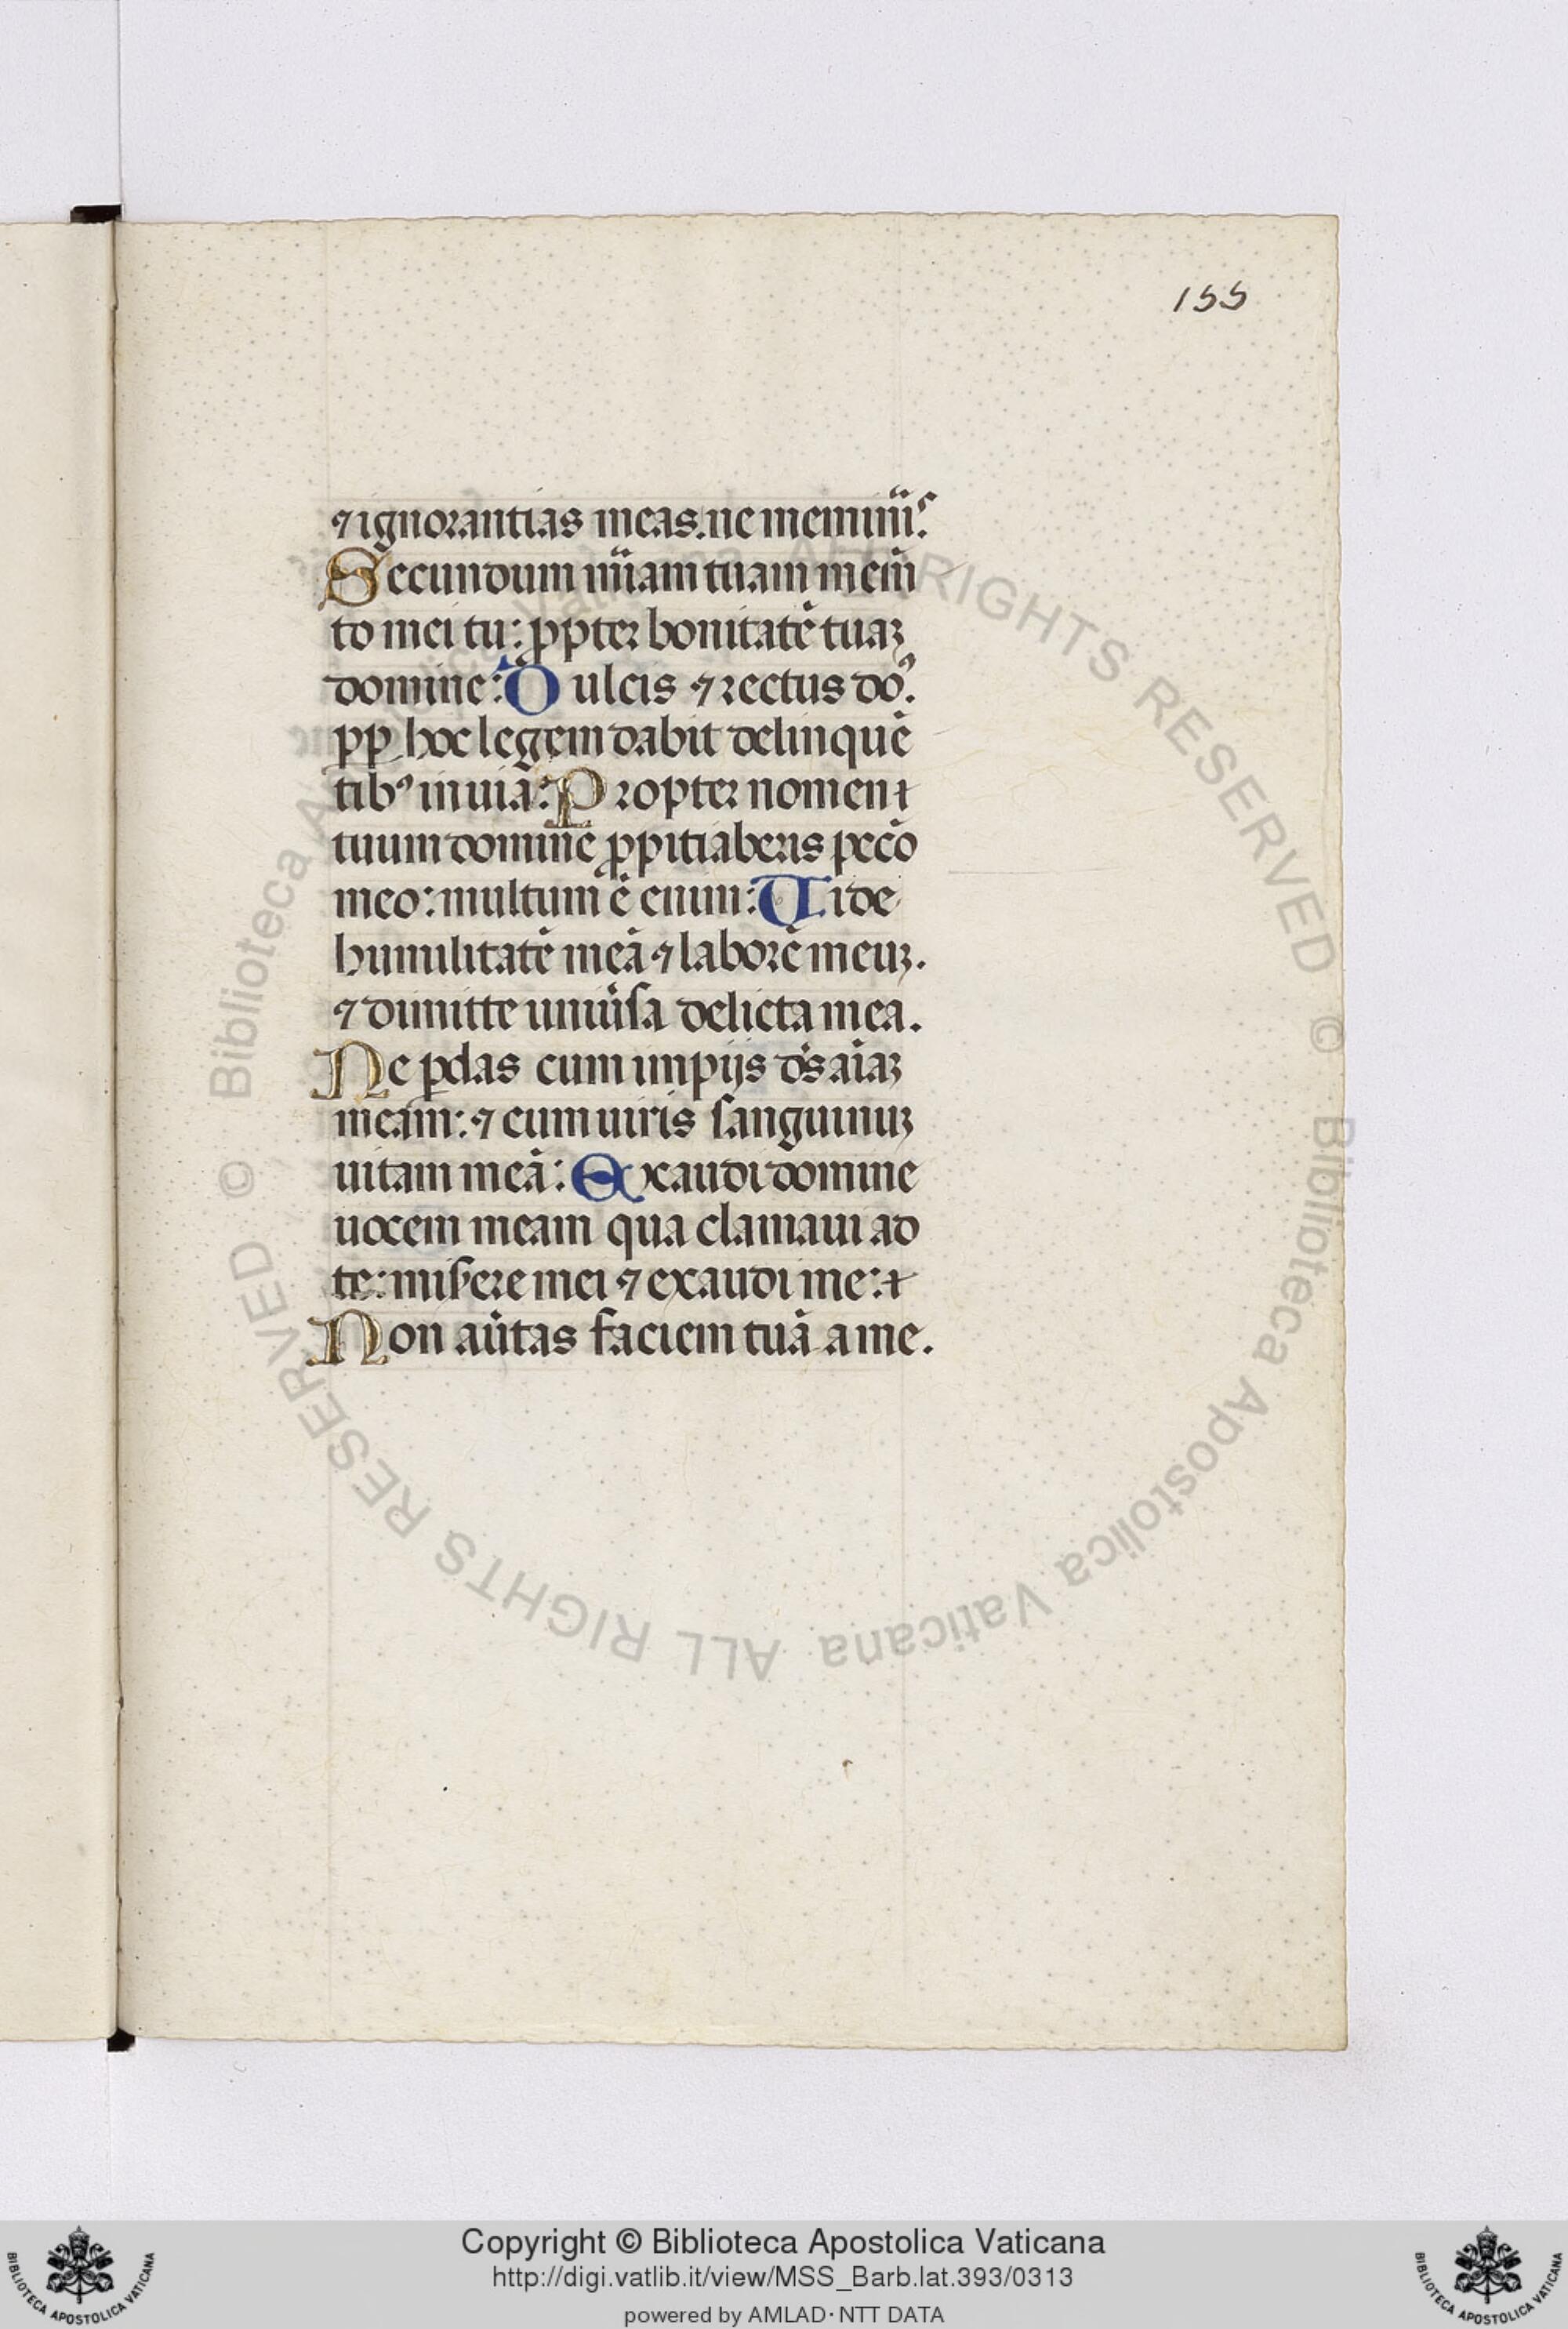 155
⁊ ignorantias meas. ne memin̄iꝭ.
Secundum mīam tuam mem̄
to mei tu: ꝓpter bonitatē tuaꝫ
domine: Dulcis ⁊ rectus dō⁹.
ꝓp̱ hoc legem dabit delinquē
tib⁹ in uiā: Propter nomen
tuum domine ꝓpitiaberis pecc̄o
meo: multum ē enim: Uide
humilitatē meā ⁊ laborē meuꝫ.
⁊ dimitte uniu̓sa delicta mea.
Ne ꝑdas cum impijs dꝰs aīaꝫ
meam: ⁊ cum uiris sanguinuꝫ
uitam meā: Exaudi domine
uocem meam qua clamaui ad
te: mis̓ere mei ⁊ exaudi me:
Non au̓tas faciem tuā a me.
© Biblioteca Apostolica Vaticana ALL RIGHTS RESERVED
© Biblioteca Apostolica Vaticana ALL RIGHTS RESERVED
Copyright © Biblioteca Apostolica Vaticana
http://digi.vatlib.it/view/MSS_Barb.lat.393/0313
powered by AMLAD·NTT DATA
BIBLIOTECA APOSTOLICA VATICANA
BIBLIOTECA APOSTOLICA VATICANA